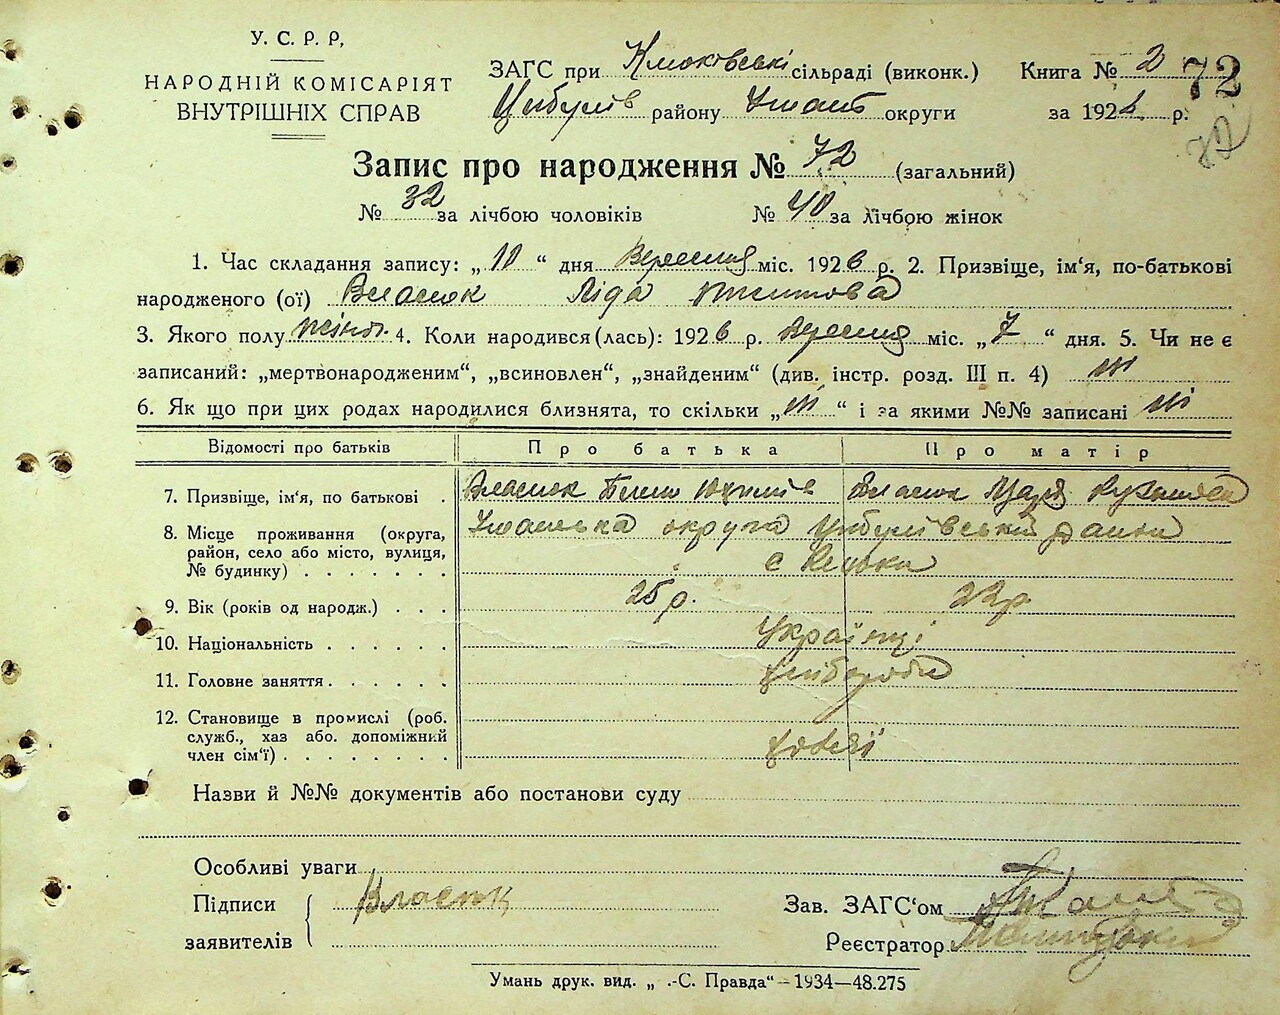 У. С. Р. Р.
НАРОДНІЙ КОМІСАРІЯТ
ВНУТРІШНІХ СПРАВ
ЗАГС при сільраді (виконк.) Книга № 2 72
Цибулів району Уманс округи за 1926 р. 72
Запис про народження № 72 (загальний)
№ 32 за лічбою чоловіків № 40 за лічбою жінок
1. Час складання запису: „ 10 “ дня Вересня міс. 1926 р. 2. Призвіще, ім‘я, по-батькові
народженого (ої) Власюк Ліда
3. Якого полу жіноч. 4. Коли народився (лась): 1926 р. Вересня міс. „ 7 “ дня. 5. Чи не є
записаний: „мертвонародженим“, „всиновлен“, „знайденим“ (див. інстр. розд. III п. 4) ні
6. Як що при цих родах народилися близнята, то скільки „ ні “ і за якими №№ записані ні
Відомості про батьків Про батька Про матір
7. Призвіще, ім‘я, по батькові . Власюк Юхимів Власюк
8. Місце проживання (округа, Уманська округа Цибулівський район
район, село або місто, вулиця,
№ будинку) . . . . . . . с
9. Вік (років од народж.) . . . 25 р. 22 р
10. Національність . . . . . . Українці
11. Головне заняття . . . . . . хліборобы
12. Становище в промислі (роб.
служб., хаз або. допоміжний
член сім‘ї) . . . . . . . .
Назви й №№ документів або постанови суду
Особливі уваги
Підписи Власюк Зав. ЗАГС‘ом
заявителів Реєстратор
Умань друк. вид. „ .-С. Правда“ – 1934—48.275